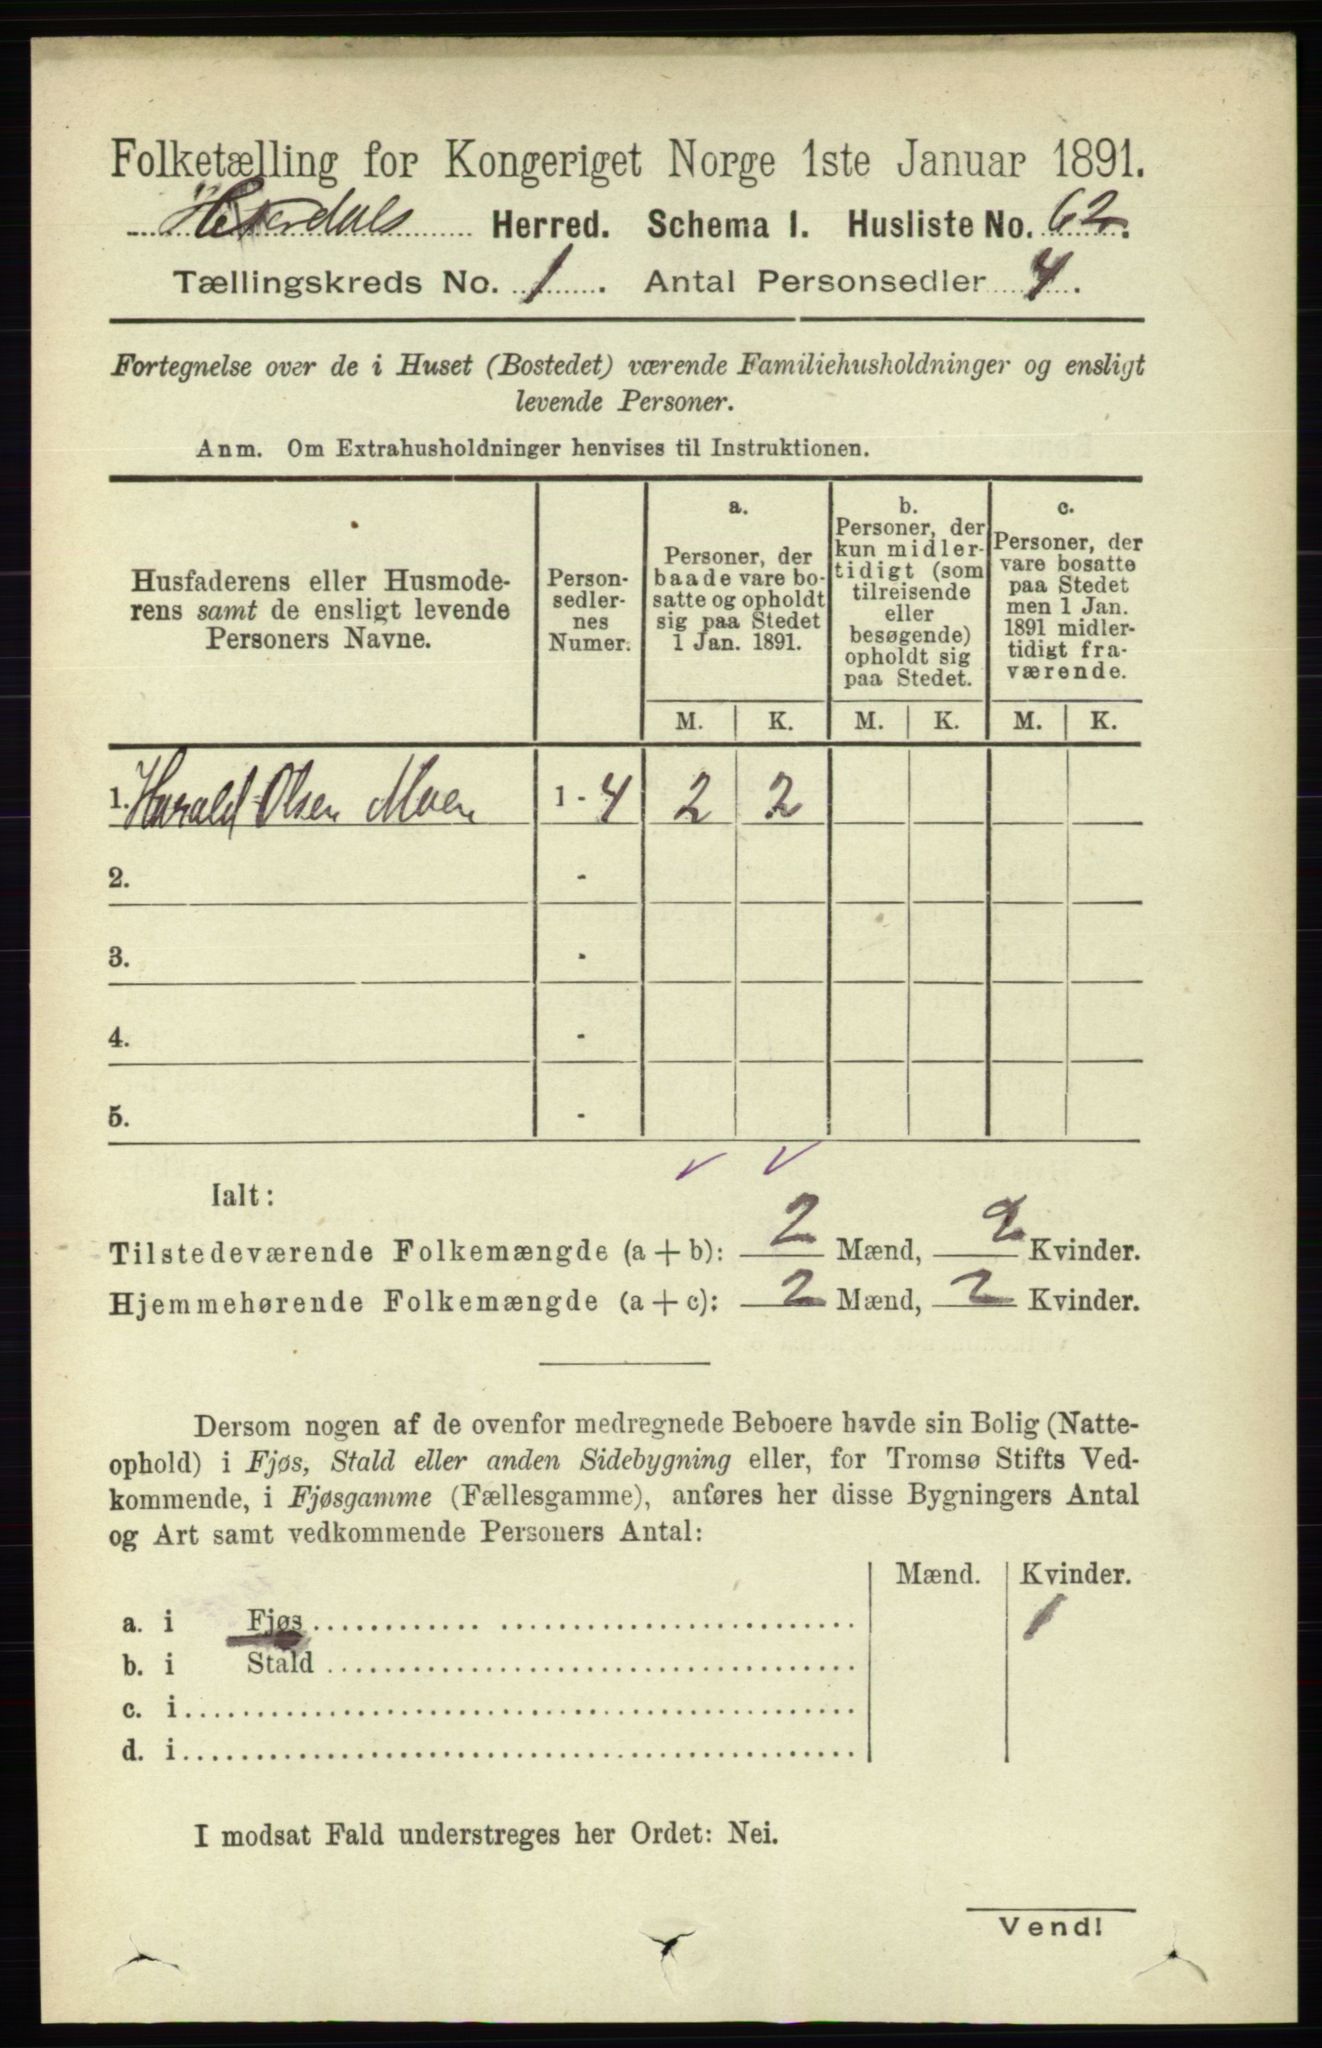 Folketælling for Kongeriget Norge 1ste Januar 1891.
Herred. Schema I. Husliste No. 62.
Tællingskreds No. 1. Antal Personsedler 4.
Fortegnelse over de i Huset (Bostedet) værende Familiehusholdninger og ensligt
levende Personer.
Anm. Om Extrahusholdninger henvises til Instruktionen.
Husfaderens eller Husmode-
rens samt de ensligt levende
Personers Navne.
Person-
sedler-
nes
Numer.
a.
Personer, der
baade vare bo-
satte og opholdt
sig paa Stedet
1 Jan. 1891.
b.
Personer, der
kun midler-
tidigt (som
tilreisende
eller
besøgende)
opholdt sig
paa Stedet.
c.
Personer, der
vare bosatte
paa Stedet
men 1 Jan.
1891 midler-
tidigt fra-
værende.
M. K. M. K. M. K.
1. Harald Olsen Moen 1 - 4 2 2
2. -
3. -
4. -
5. -
Ialt:
Tilstedeværende Folkemængde (a + b): 2 Mænd, 2 Kvinder.
Hjemmehørende Folkemængde (a + c): 2 Mænd, 2 Kvinder.
Dersom nogen af de ovenfor medregnede Beboere havde sin Bolig (Natte-
ophold) i Fjøs, Stald eller anden Sidebygning eller, for Tromsø Stifts Ved-
kommende, i Fjøsgamme (Fællesgamme), anføres her disse Bygningers Antal
og Art samt vedkommende Personers Antal:
Mænd. Kvinder.
a. i Fjøs 1
b. i Stald
c. i
d. i
I modsat Fald understreges her Ordet: Nei.
Vend!